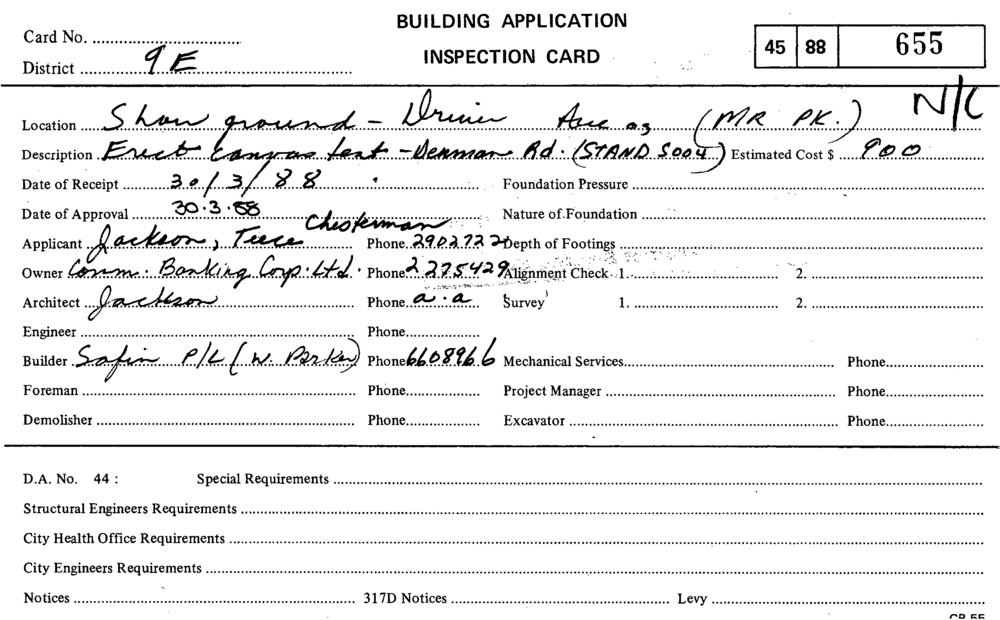 BUILDING APPLICATION
Card No.
INSPECTION CARD 45 88 655
District 9E
N/C
Location Showground - Driver Ave (MR PK.)
Description Erect canvas tent - Denman Rd. (STAND S004) Estimated Cost $ 900
Date of Receipt 30/3/88 Foundation Pressure
Date of Approval 30.3.88 Nature of Foundation
Applicant Jackson, Teece Chesterman Phone 2902722 Depth of Footings
Owner Comm. Banking Corp. Ltd. Phone 2275429 Alignment Check 1. 2.
Architect Jackson Phone a.a Survey 1. 2.
Engineer Phone
Builder Safin P/L (W. Parker) Phone 6608966 Mechanical Services Phone
Foreman Phone Project Manager Phone
Demolisher Phone Excavator Phone
D.A. No. 44 : Special Requirements
Structural Engineers Requirements
City Health Office Requirements
City Engineers Requirements
Notices 317D Notices Levy